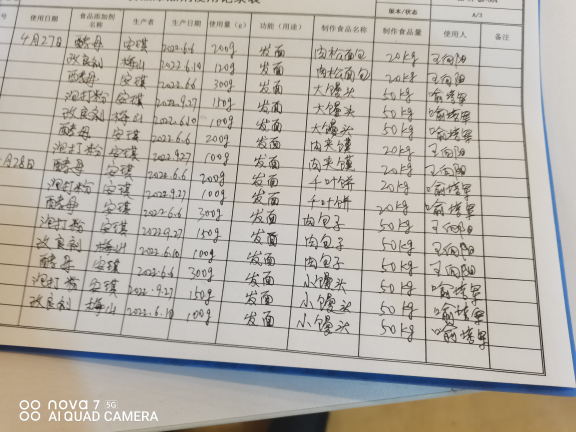 号 使用日期 食品添加剂名称 生产者 生产日期 使用量（g） 功能（用途） 制作食品名称 制作食品量 使用人 备注
版本/状态 A/2
4月27日 酵母 安琪 2022.6.6 200g 发面 肉松面包 20kg 王向阳
改良剂 梅山 2022.6.10 120g 发面 肉松面包 20kg 王向阳
酵母 安琪 2022.6.6 300g 发面 大馒头 50kg
泡打粉 安琪 2022.9.27 150g 发面 大馒头 50kg
改良剂 梅山 2022.6.10 100g 发面 大馒头 50kg
酵母 安琪 2022.6.6 200g 发面 肉夹馍 20kg 王向阳
泡打粉 安琪 2022.9.27 100g 发面 肉夹馍 20kg 王向阳
月28日 酵母 安琪 2022.6.6 200g 发面 千叶饼 20kg
泡打粉 安琪 2022.9.27 100g 发面 千叶饼 20kg
酵母 安琪 2022.6.6 300g 发面 肉包子 50kg 王向阳
泡打粉 安琪 2022.9.27 150g 发面 肉包子 50kg 王向阳
改良剂 梅山 2022.6.10 100g 发面 肉包子 50kg 王向阳
酵母 安琪 2022.6.6 300g 发面 小馒头 50kg
泡打粉 安琪 2022.9.27 150g 发面 小馒头 50kg
改良剂 梅山 2022.6.10 100g 发面 小馒头 50kg
nova 7 5G
AI QUAD CAMERA